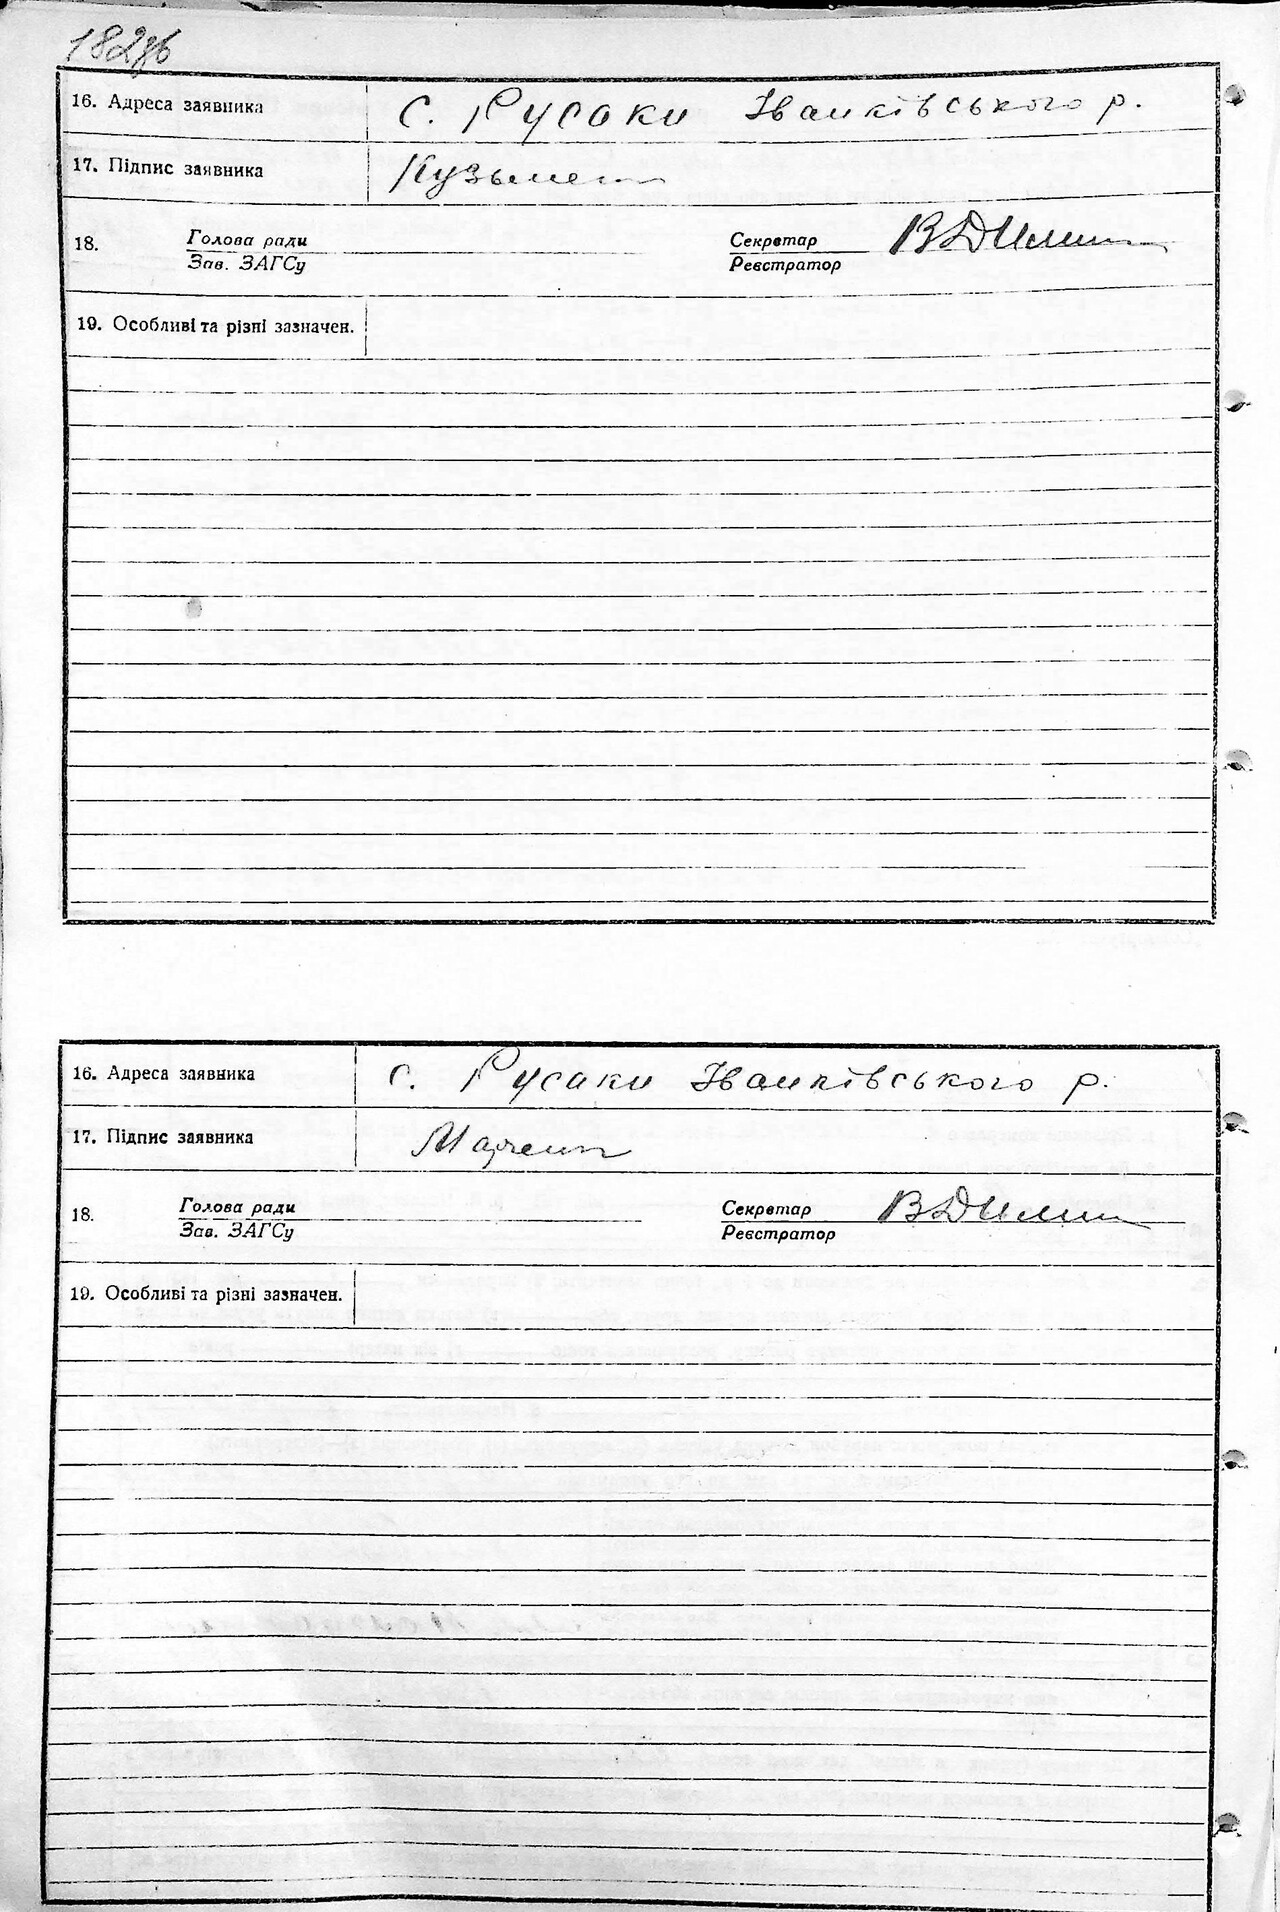 182зв
16. Адреса заявника с. Русаки Іванківського р.
17. Підпис заявника Кузьмен
18. Голова ради Секретар
Зав. ЗАГСу Реєстратор
19. Особливі та різні зазначен.
16. Адреса заявника с. Русаки Іванківського р.
17. Підпис заявника Марчен
18. Голова ради Секретар
Зав. ЗАГСу Реєстратор
19. Особливі та різні зазначен.